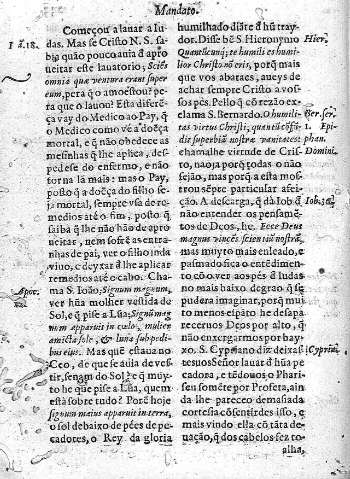 Mandato.
Começou a lauar a Iu-
das. Mas se Cristo N. S. sa-
bia quão pouco auia d apro
ueitar esse lauatorio; Sciês
omnia quæ ventura erant super
eum, pera q̃ o amoestou? pe-
ra que o lauou? Esta diferẽ-
ça vay do Medico ao Pay, q̃
o Medico como vê a doẽça
mortal, e q̃ não obedece as
mesinhas q̃ lhe aplica, des-
pedese do enfermo, e não
torna lâ mais: mas o Pay,
posto q̃ a doẽça do filho se-
ja mortal, sempre vsa de re-
medios atè o fim, posto q̃
saiba q̃ lhe não hão de apro
ueitar, nem sofrẽ as entra-
nhas de pai, ver o filho inda
viuo, e deyxar d lhe aplicar
remedios atè o cabo. Cha-
ma S. Ioão, Signum magnum,
ver hũa molher vestida de
Sol, e q̃ pise a Lũa, Signũ mag
num apparuit in cœlo, mulier
amicta sole, & luna sub pedi-
bus eius. Mas quẽ estaua no
Ceo, de que se auia de ves-
tir, senam do Sol? e q̃ muy-
to he que pise a Lũa, quem
està sobre tudo? Porẽ hoje
signum maius apparuit in terra,
o sol debaixo de pées de pe-
cadores, o Rey da gloria
humilhado diãte d hũ tray-
dor. Disse bẽ S. Hieronymo
Quantũcunq; te humilies humi
lior Christo nõ eris, porq̃ mais
que vos abataes, aueys de
achar sempre Cristo a vos-
sos pès. Pello q̃ cõ rezão ex-
clama S. Bernardo. O humili-
tas virtus Christi; quantũ cõfũ-
dis superbiã nostræ vanitatis!
chamalhe virtude de Cris-
to, nao ja porq̃ todas o não
sejão, mas porq̃ a esta mos-
trou sẽpre particular afei-
ção. A descarga, q̃ dà Iob d̃
não entender os pensamẽ-
tos de Deos, he. Ecce Deus
magnus vincẽs scientiã nostrã,
mas muyto mais enleado, e
pasmado fica o entẽdimen-
to cõ o ver aos pés d Iudas
no mais baixo degrao q̃ se
pudera imaginar, porq̃ mui
to menos espãto he desapa
recernos Deos por alto, q̃
não enxergarmos por bay-
xo. S. Cypriano diz deixas
tes vos Señor lauar d hũa pe
cadora, e tèdouos o Phari-
seu somẽte por Profeta, ain
da lhe pareceo demasiada
cortesia cõsentirdes isso, e
mais vindo ella cõ tãta de-
uação, q̃ dos cabelos fez to-
alha,
Hier.
Iob. 36.
Cyprian.